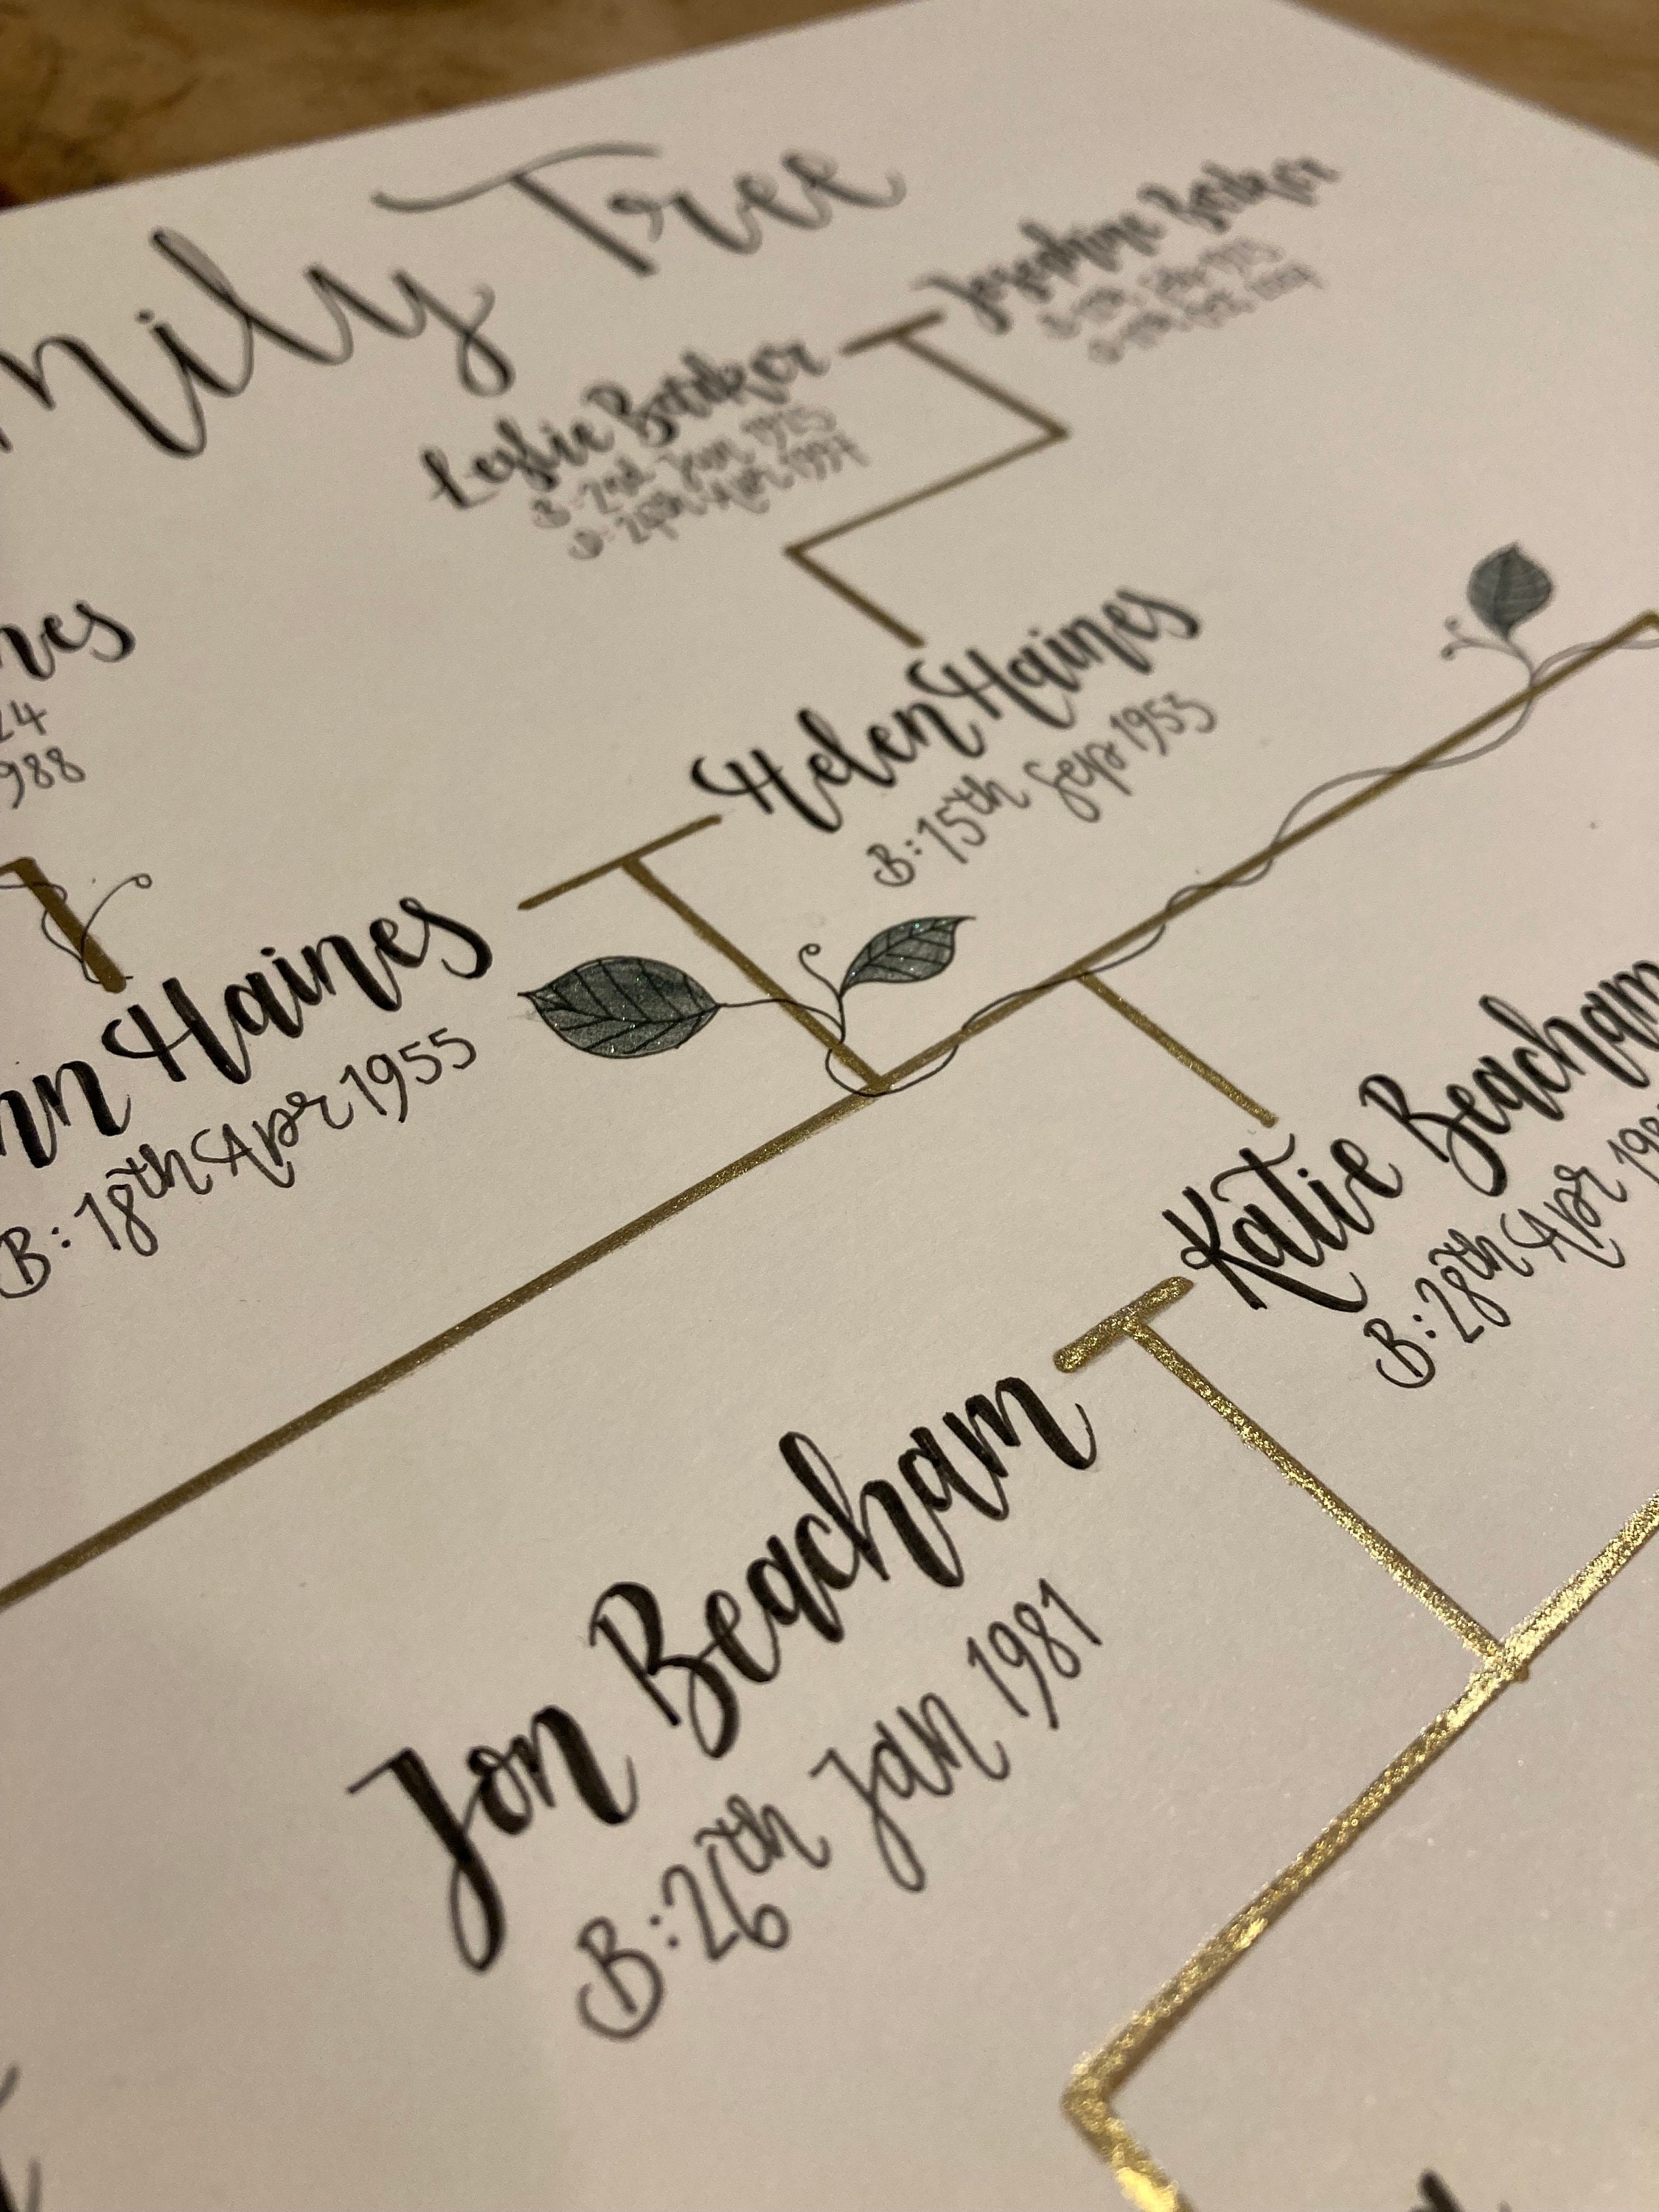 mily Tree
Leslie
B: 2nd Jan 1925
D: 24th Apr 1997
Josephine
nes
24
988
Helen Haines
B: 15th Sep 1953
nn Haines
B: 18th Apr 1955
Katie Beacham
B: 28th Apr 198
Jon Beacham
B: 26th Jan 1981